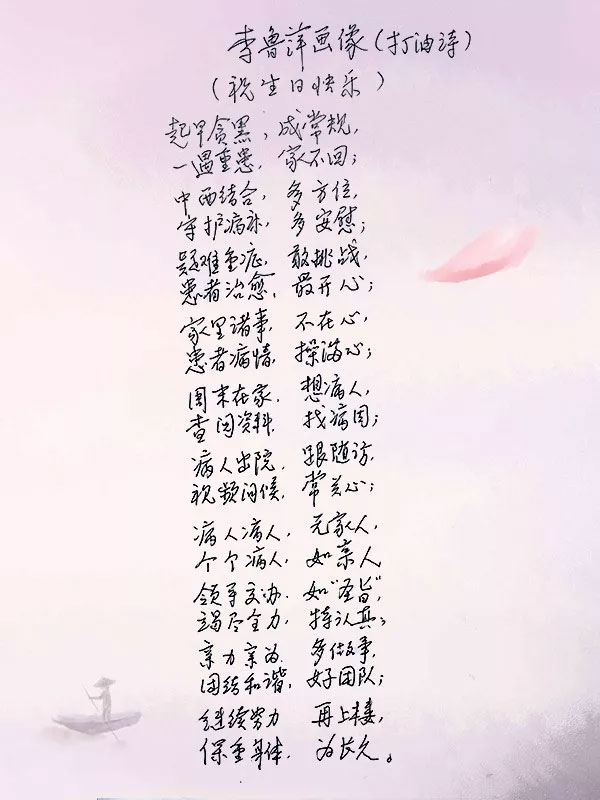 李鲁萍画像(打油诗)
(祝生日快乐)
起早贪黑,成常规,
一遇重患,家不回;
中西结合,多方位,
守护病床,多安慰;
疑难重症,敢挑战,
患者治愈,最开心;
家里诸事,不在心,
患者病情,操满心;
周末在家,想病人,
查阅资料,找病因;
病人出院,跟随访,
视频问候,常关心;
病人病人,无家人,
个个病人,如亲人
领导交办,如"圣旨",
竭尽全力,特认真;
亲力亲为,多做事,
团结和谐,好团队;
继续努力 再上楼,
保重身体,为长久。